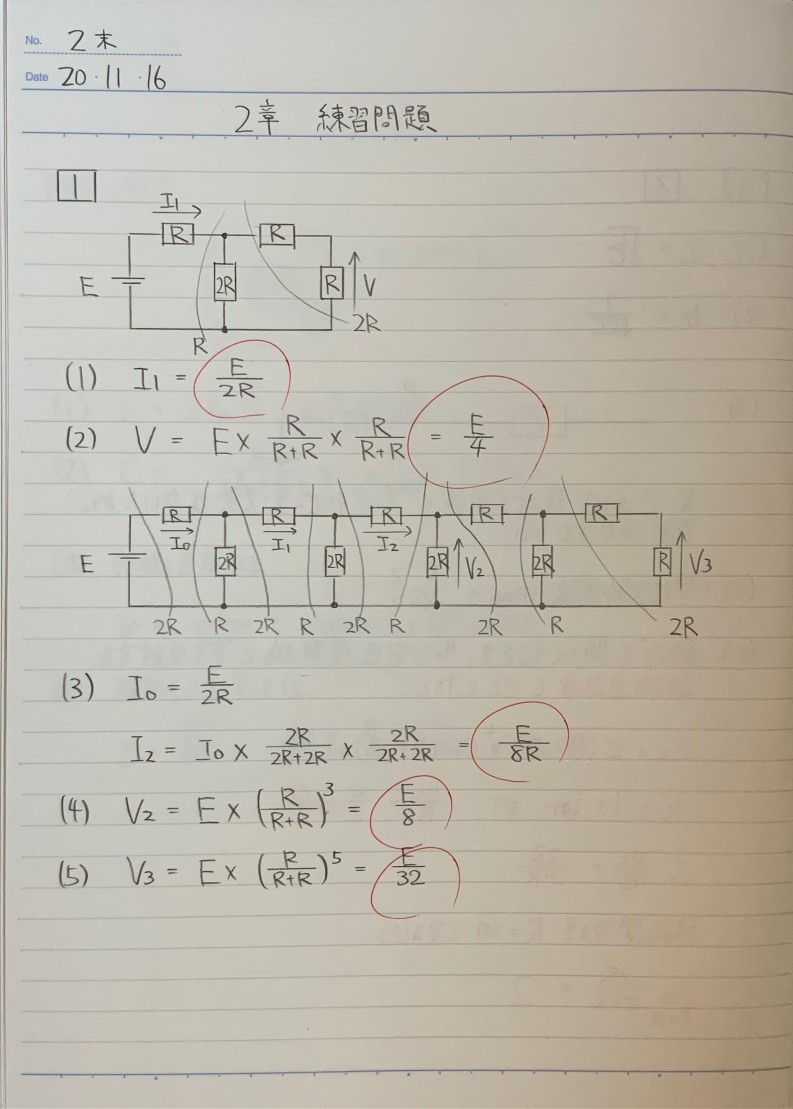 No. 2末
Date 20・11・16
2章 練習問題
1
I₁
R R
E 2R R V
R 2R
(1) I₁ = E/2R
(2) V = E × R/(R+R) × R/(R+R) = E/4
R R R R R
I₀ I₁ I₂
E 2R 2R 2R V₂ 2R R V₃
2R R 2R R 2R R 2R R 2R
(3) I₀ = E/2R
I₂ = I₀ × 2R/(2R+2R) × 2R/(2R+2R) = E/8R
(4) V₂ = E × (R/(R+R))³ = E/8
(5) V₃ = E × (R/(R+R))⁵ = E/32